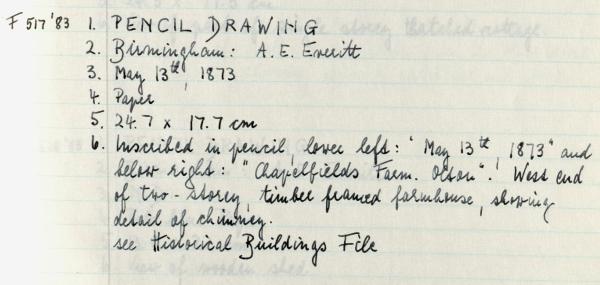 F 517'83 1. PENCIL DRAWING
2. Birmingham: A. E. Everitt
3. May 13th, 1873
4. Paper
5. 24.7 x 17.7 cm
6. Inscribed in pencil, lower left: "May 13th, 1873" and
below right: "Chapelfields Farm. Olton". West end
of two-storey, timber framed farmhouse, showing
detail of chimney.
see Historical Buildings File